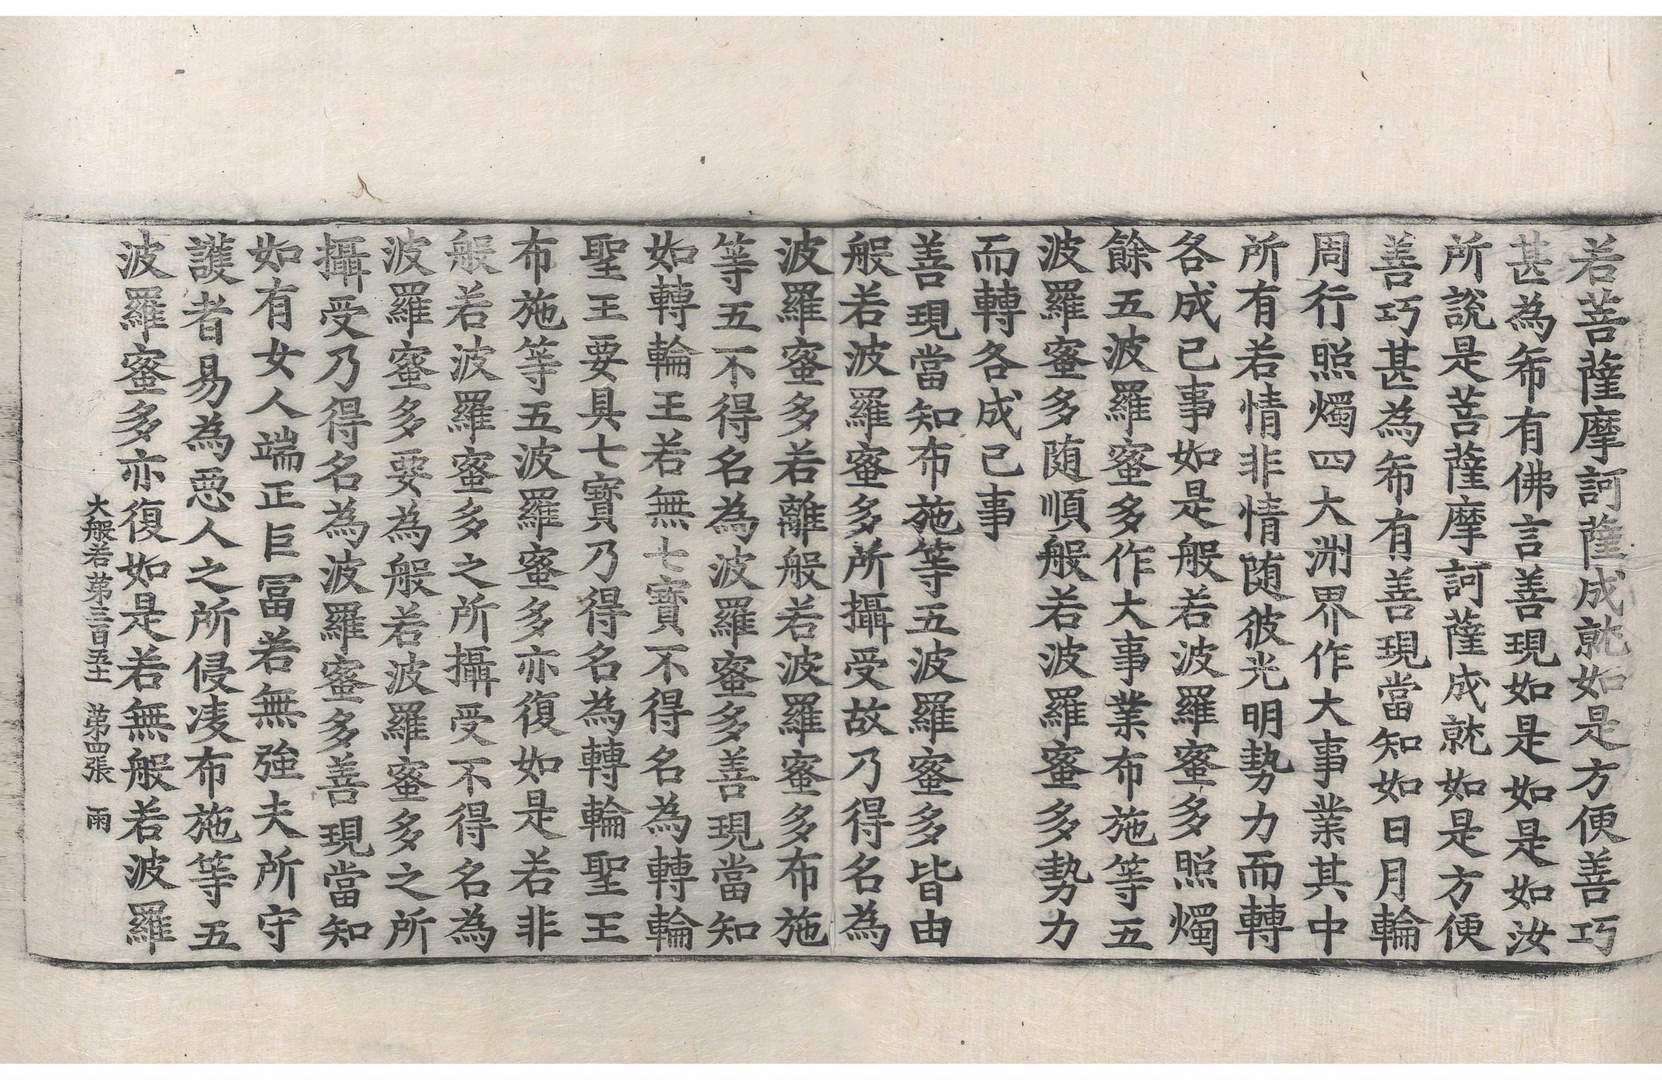 若菩薩摩訶薩成就如是方便善巧
甚為希有佛言善現如是如是如汝
所說是菩薩摩訶薩成就如是方便
善巧甚為布有善現當知如日月輪
周行照燭四大洲界作大事業其中
所有若情非情随彼光明勢力而轉
各成已事如是般若波羅蜜多照燭
餘五波羅蜜多作大事業布施等五
波羅蜜多随順般若波羅蜜多勢力
而轉各成已事
善現當知布施等五波羅蜜多皆由
般若波羅蜜多所攝受故乃得名為
波羅蜜多若離般若波羅蜜多布施
等五不得名為波羅蜜多善現當知
如轉輪王若無七寶不得名為轉輪
聖王要具七寶乃得名為轉輪聖王
布施等五波羅蜜多亦復如是若非
般若波羅蜜多之所攝受不得名為
波羅蜜多要為般若波羅蜜多之所
攝受乃得名為波羅蜜多善現當知
如有女人端正巨冨若無強夫所守
護者易為惡人之所侵淩布施等五
波羅蜜多亦復如是若無般若波羅
大般若第三百五十 第四張 雨